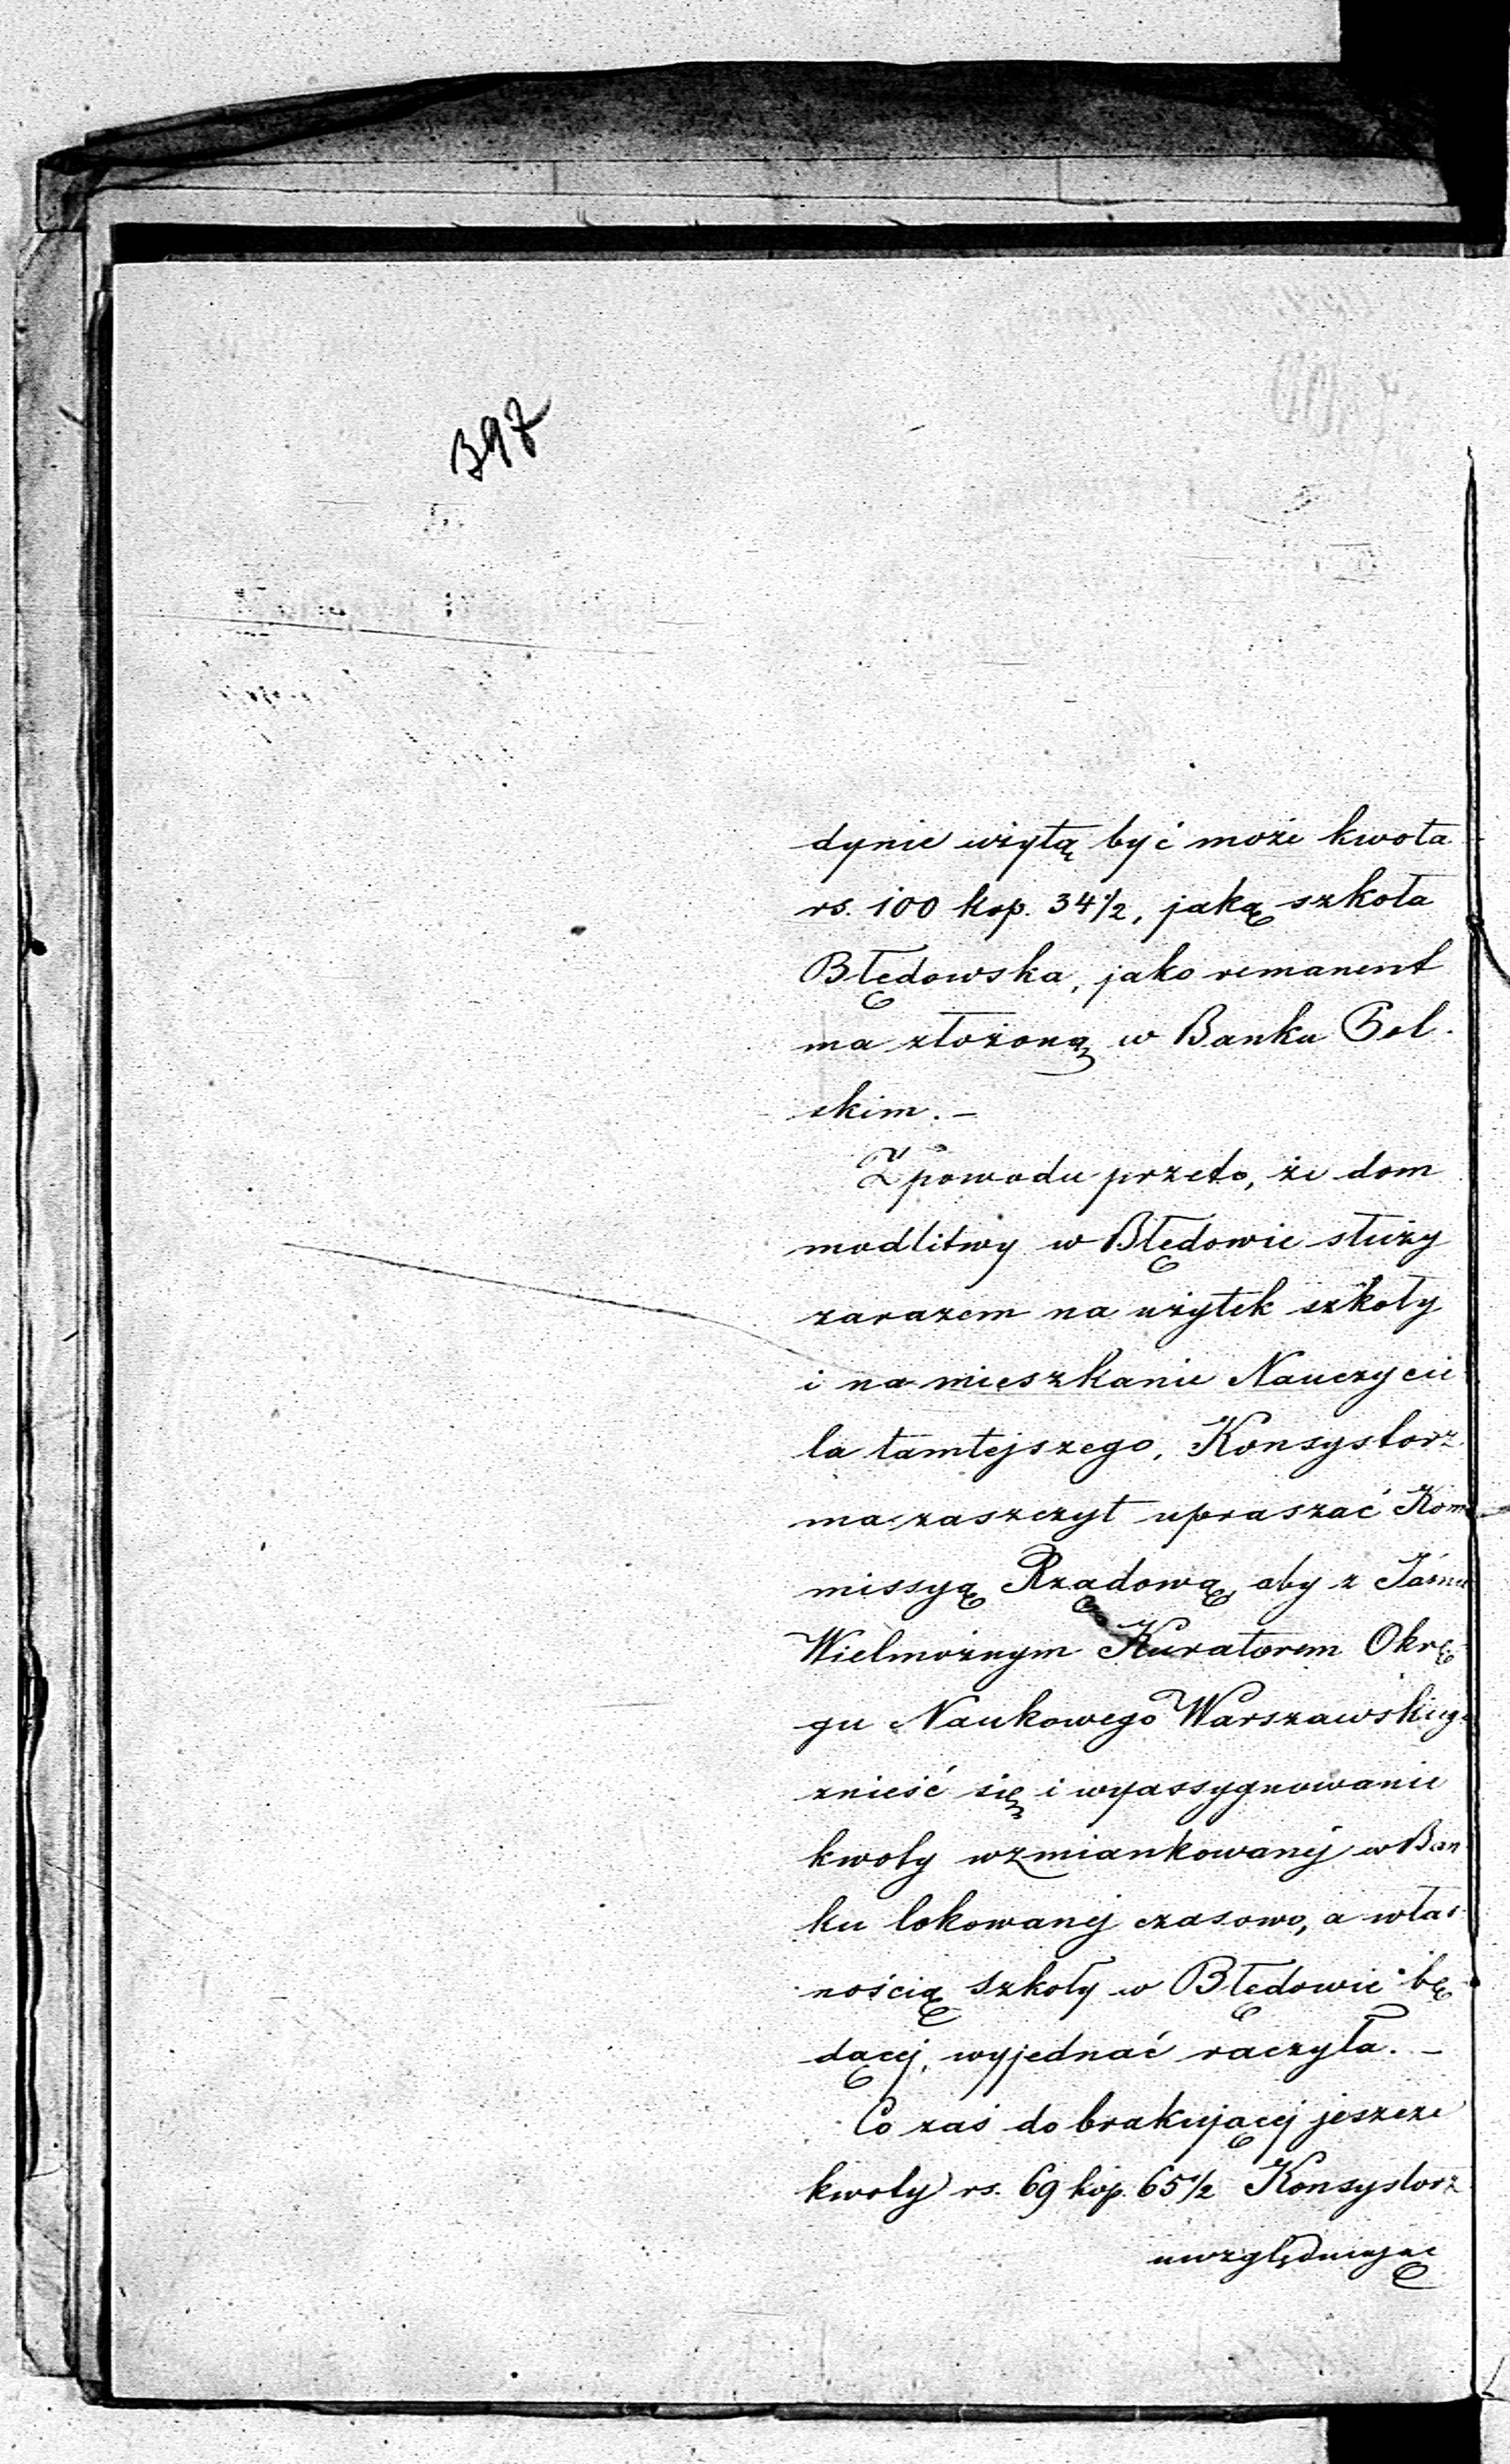 397
dynie użytą być może kwota
rs. 100 kop. 34 1/2, jaką szkoła
Błędowska, jako remanent
ma złożoną w Banku Pol-
skim. —
Z powodu przeto, że dom
modlitwy w Błędowie służy
zarazem na użytek szkoły
i na mieszkanie Nauczycie
la tamtejszego, Konsystorz
ma zaszczyt upraszać Kom
missyą Rządową, aby z Jaśnie
Wielmożnym Kuratorem Okrę
gu Naukowego Warszawskiego
znieść się i wyassygnowanie
kwoty wzmiankowanéj w Ban
ku lokowanéj czasowo, a włas
nością szkoły w Błędowie bę
dącéj, wyjednać raczyła. —
Co zaś do brakującéj jeszcze
kwoty rs. 69 kop. 65 1/2 Konsystorz
uwzględniając